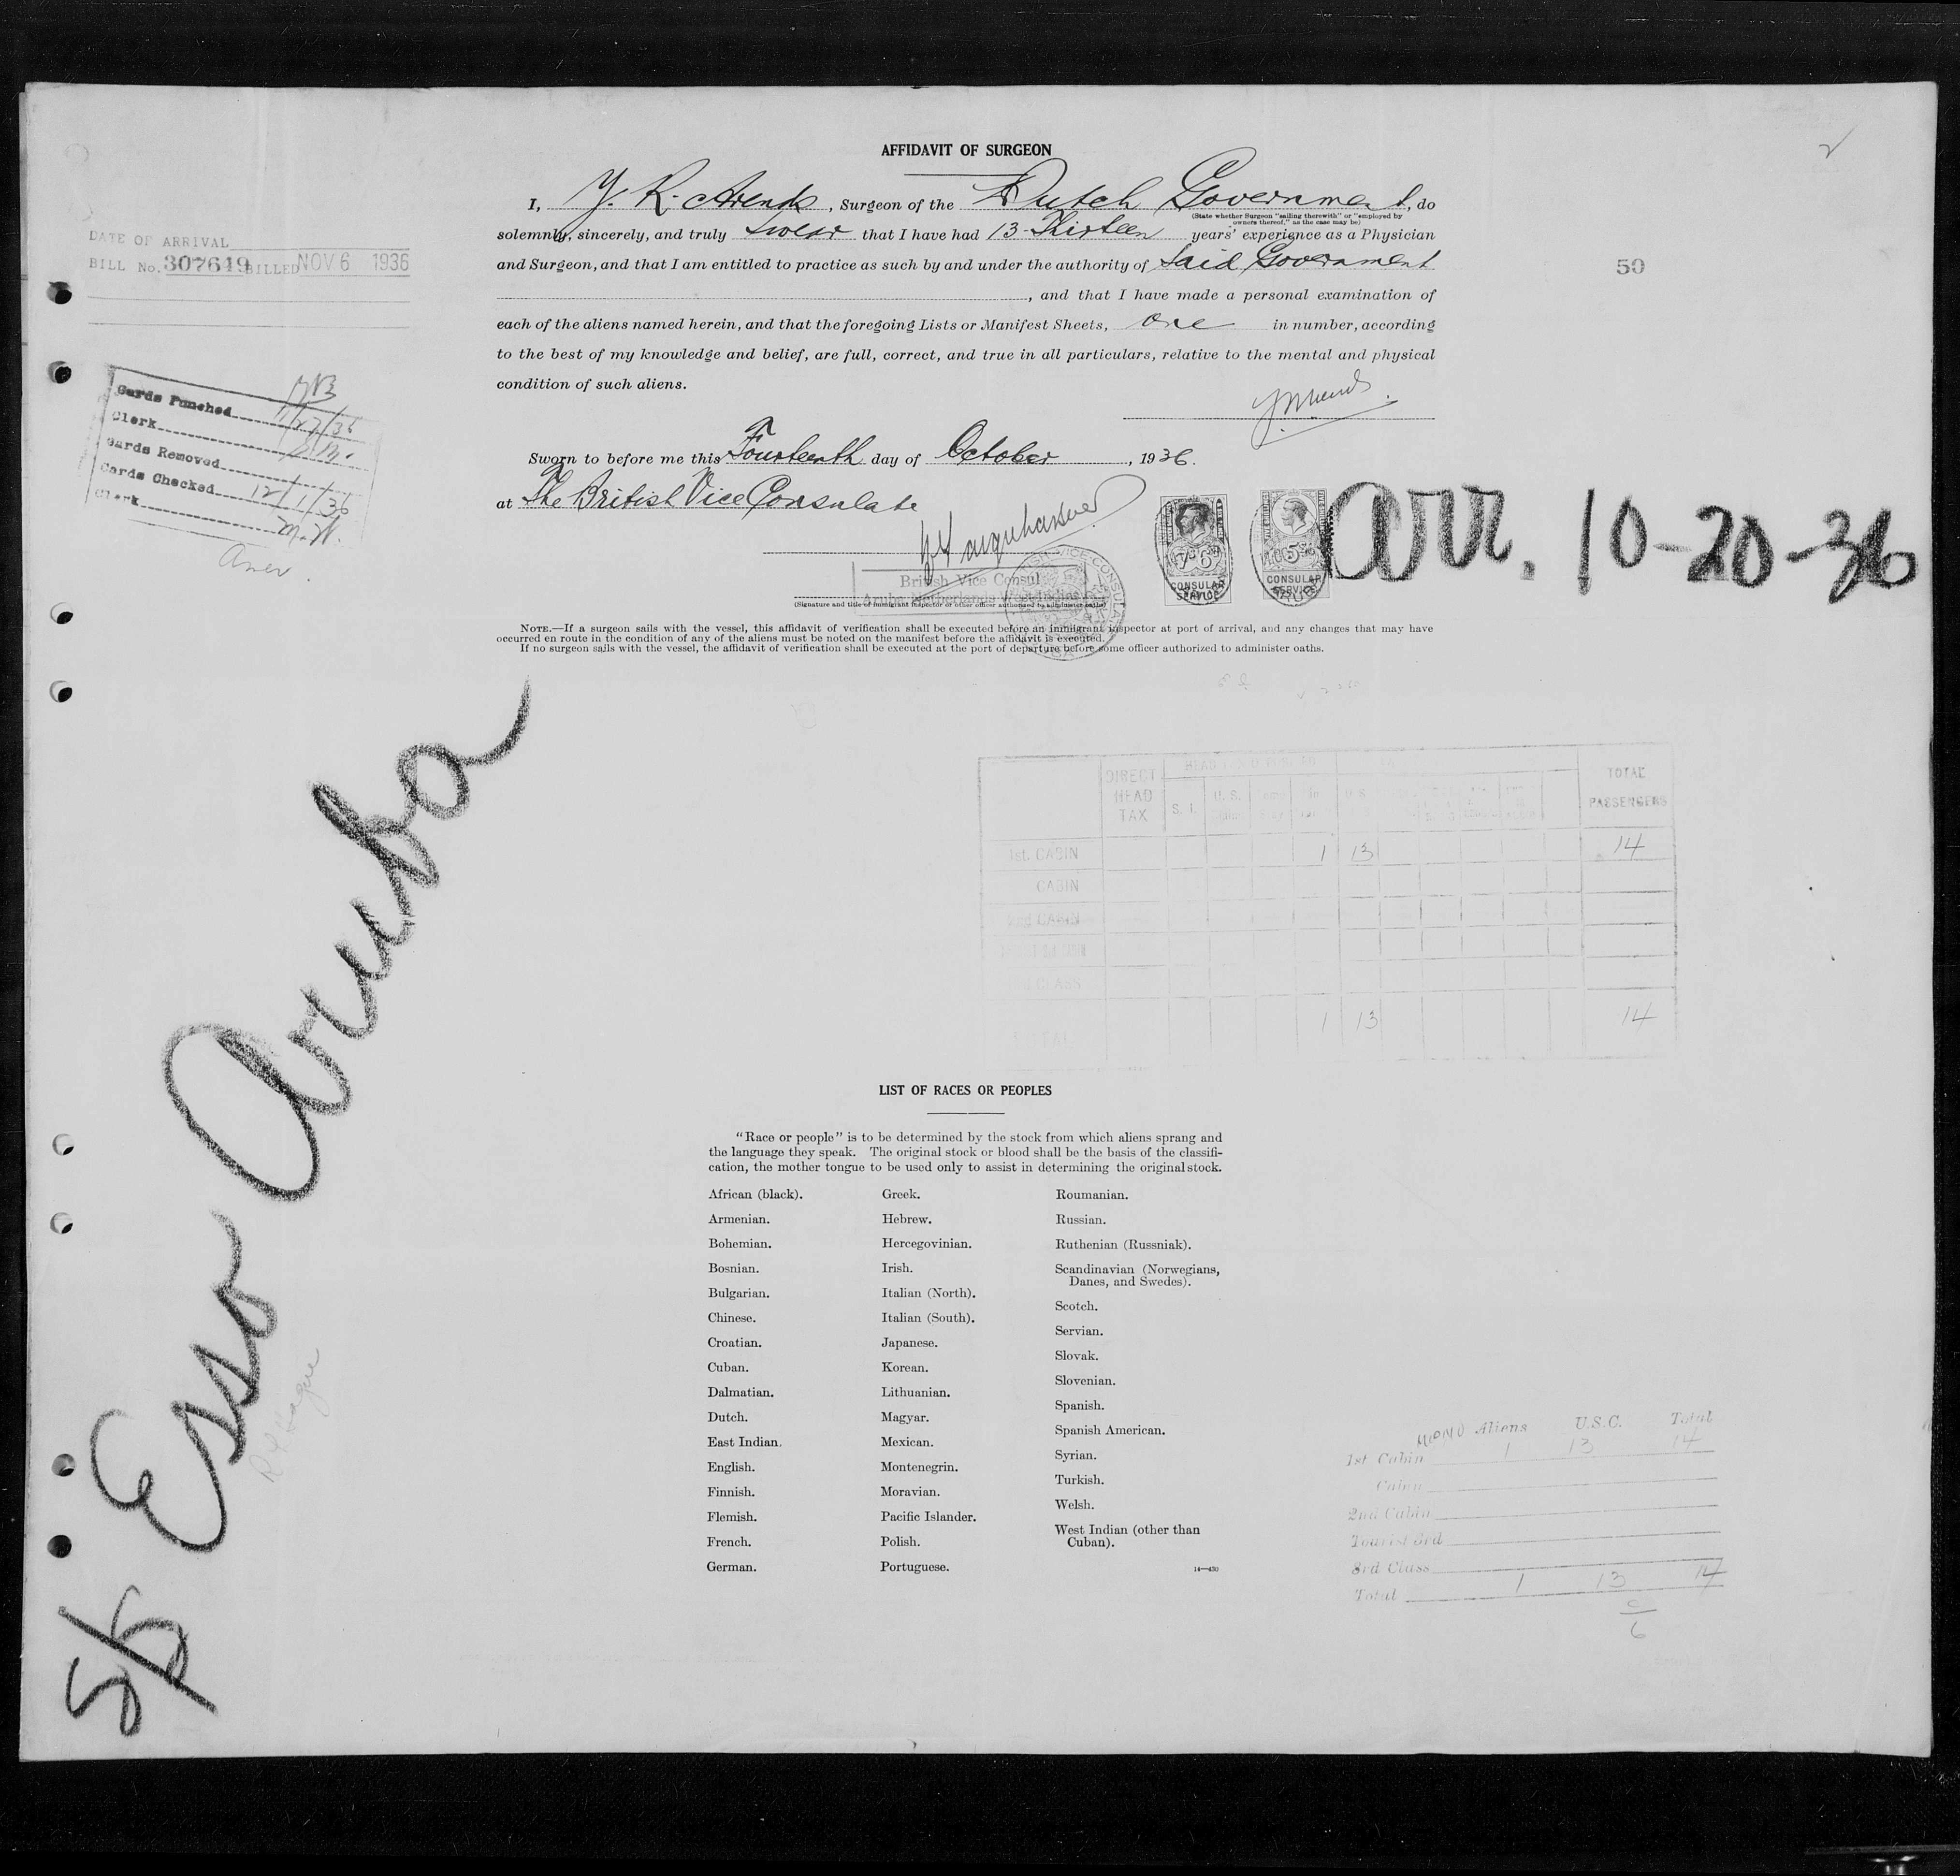 AFFIDAVIT OF SURGEON
I, Y. R. Arends, Surgeon of the Dutch Government, do
(State whether Surgeon "sailing therewith" or "employed by
owners thereof," as the case may be)
solemnly, sincerely, and truly swear that I have had 13-Thirteen years' experience as a Physician
and Surgeon, and that I am entitled to practice as such by and under the authority of Said Government
, and that I have made a personal examination of
each of the aliens named herein, and that the foregoing Lists or Manifest Sheets, one in number, according
to the best of my knowledge and belief, are full, correct, and true in all particulars, relative to the mental and physical
condition of such aliens.
Sworn to before me this Fourteenth day of October, 1936.
at The British Vice Consulate
British Vice Consul
Aruba Netherlands West Indies
(Signature and title of immigrant inspector or other officer authorized to administer oaths)
CONSULAR
SERVICE
CONSULAR
SERVICE
arr. 10-20-36
NOTE.—If a surgeon sails with the vessel, this affidavit of verification shall be executed before an immigrant inspector at port of arrival, and any changes that may have
occurred en route in the condition of any of the aliens must be noted on the manifest before the affidavit is executed.
If no surgeon sails with the vessel, the affidavit of verification shall be executed at the port of departure before some officer authorized to administer oaths.
DATE OF ARRIVAL
BILL No. 307649 BILLED NOV 6 1936
50
Cards Punched 11/27/36
Clerk
Cards Removed
Cards Checked 12/1/36
Clerk M.W.
S/S Esso Aruba
DIRECT HEAD TAX
S. I.
U. S.
TOTAL PASSENGERS
1st. CABIN 1 13 14
CABIN
2nd CABIN
CLASS
1 13 14
LIST OF RACES OR PEOPLES
"Race or people" is to be determined by the stock from which aliens sprang and
the language they speak. The original stock or blood shall be the basis of the classifi-
cation, the mother tongue to be used only to assist in determining the original stock.
African (black).
Armenian.
Bohemian.
Bosnian.
Bulgarian.
Chinese.
Croatian.
Cuban.
Dalmatian.
Dutch.
East Indian.
English.
Finnish.
Flemish.
French.
German.
Greek.
Hebrew.
Hercegovinian.
Irish.
Italian (North).
Italian (South).
Japanese.
Korean.
Lithuanian.
Magyar.
Mexican.
Montenegrin.
Moravian.
Pacific Islander.
Polish.
Portuguese.
Roumanian.
Russian.
Ruthenian (Russniak).
Scandinavian (Norwegians,
Danes, and Swedes).
Scotch.
Servian.
Slovak.
Slovenian.
Spanish.
Spanish American.
Syrian.
Turkish.
Welsh.
West Indian (other than
Cuban).
14—430
Aliens U.S.C. Total
1st Cabin 1 13 14
Cabin
2nd Cabin
Tourist 3rd
3rd Class
Total 1 13 14
6